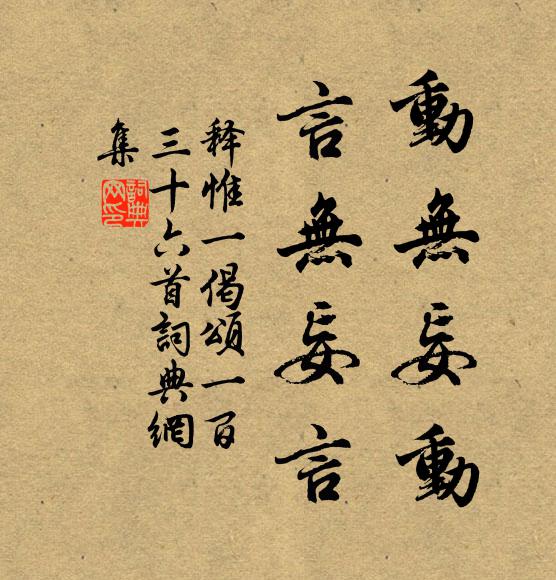 動無妄動
言無妄言
释惟一偈頌一百
三十六首詞典網
集
詞典网印